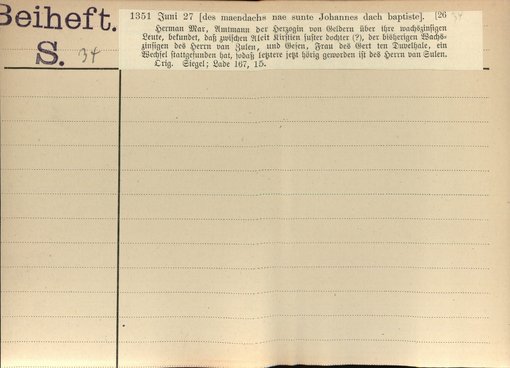 Beiheft.
S. 34
1351 Juni 27 [des maendachs nae sunte Johannes dach baptiste]. [26 34
Herman Mar, Amtmann der Herzogin von Geldern über ihre wachszinsigen
Leute, bekundet, daß zwischen Aleit Kirstien suster dochter (?), der bisherigen Wachs-
zinsigen des Herrn van Zulen, und Gesen, Frau des Gert ten Duvelhale, ein
Wechsel stattgefunden hat, sodaß letztere jetzt hörig geworden ist des Herrn van Sulen.
Orig. Siegel; Lade 167, 15.